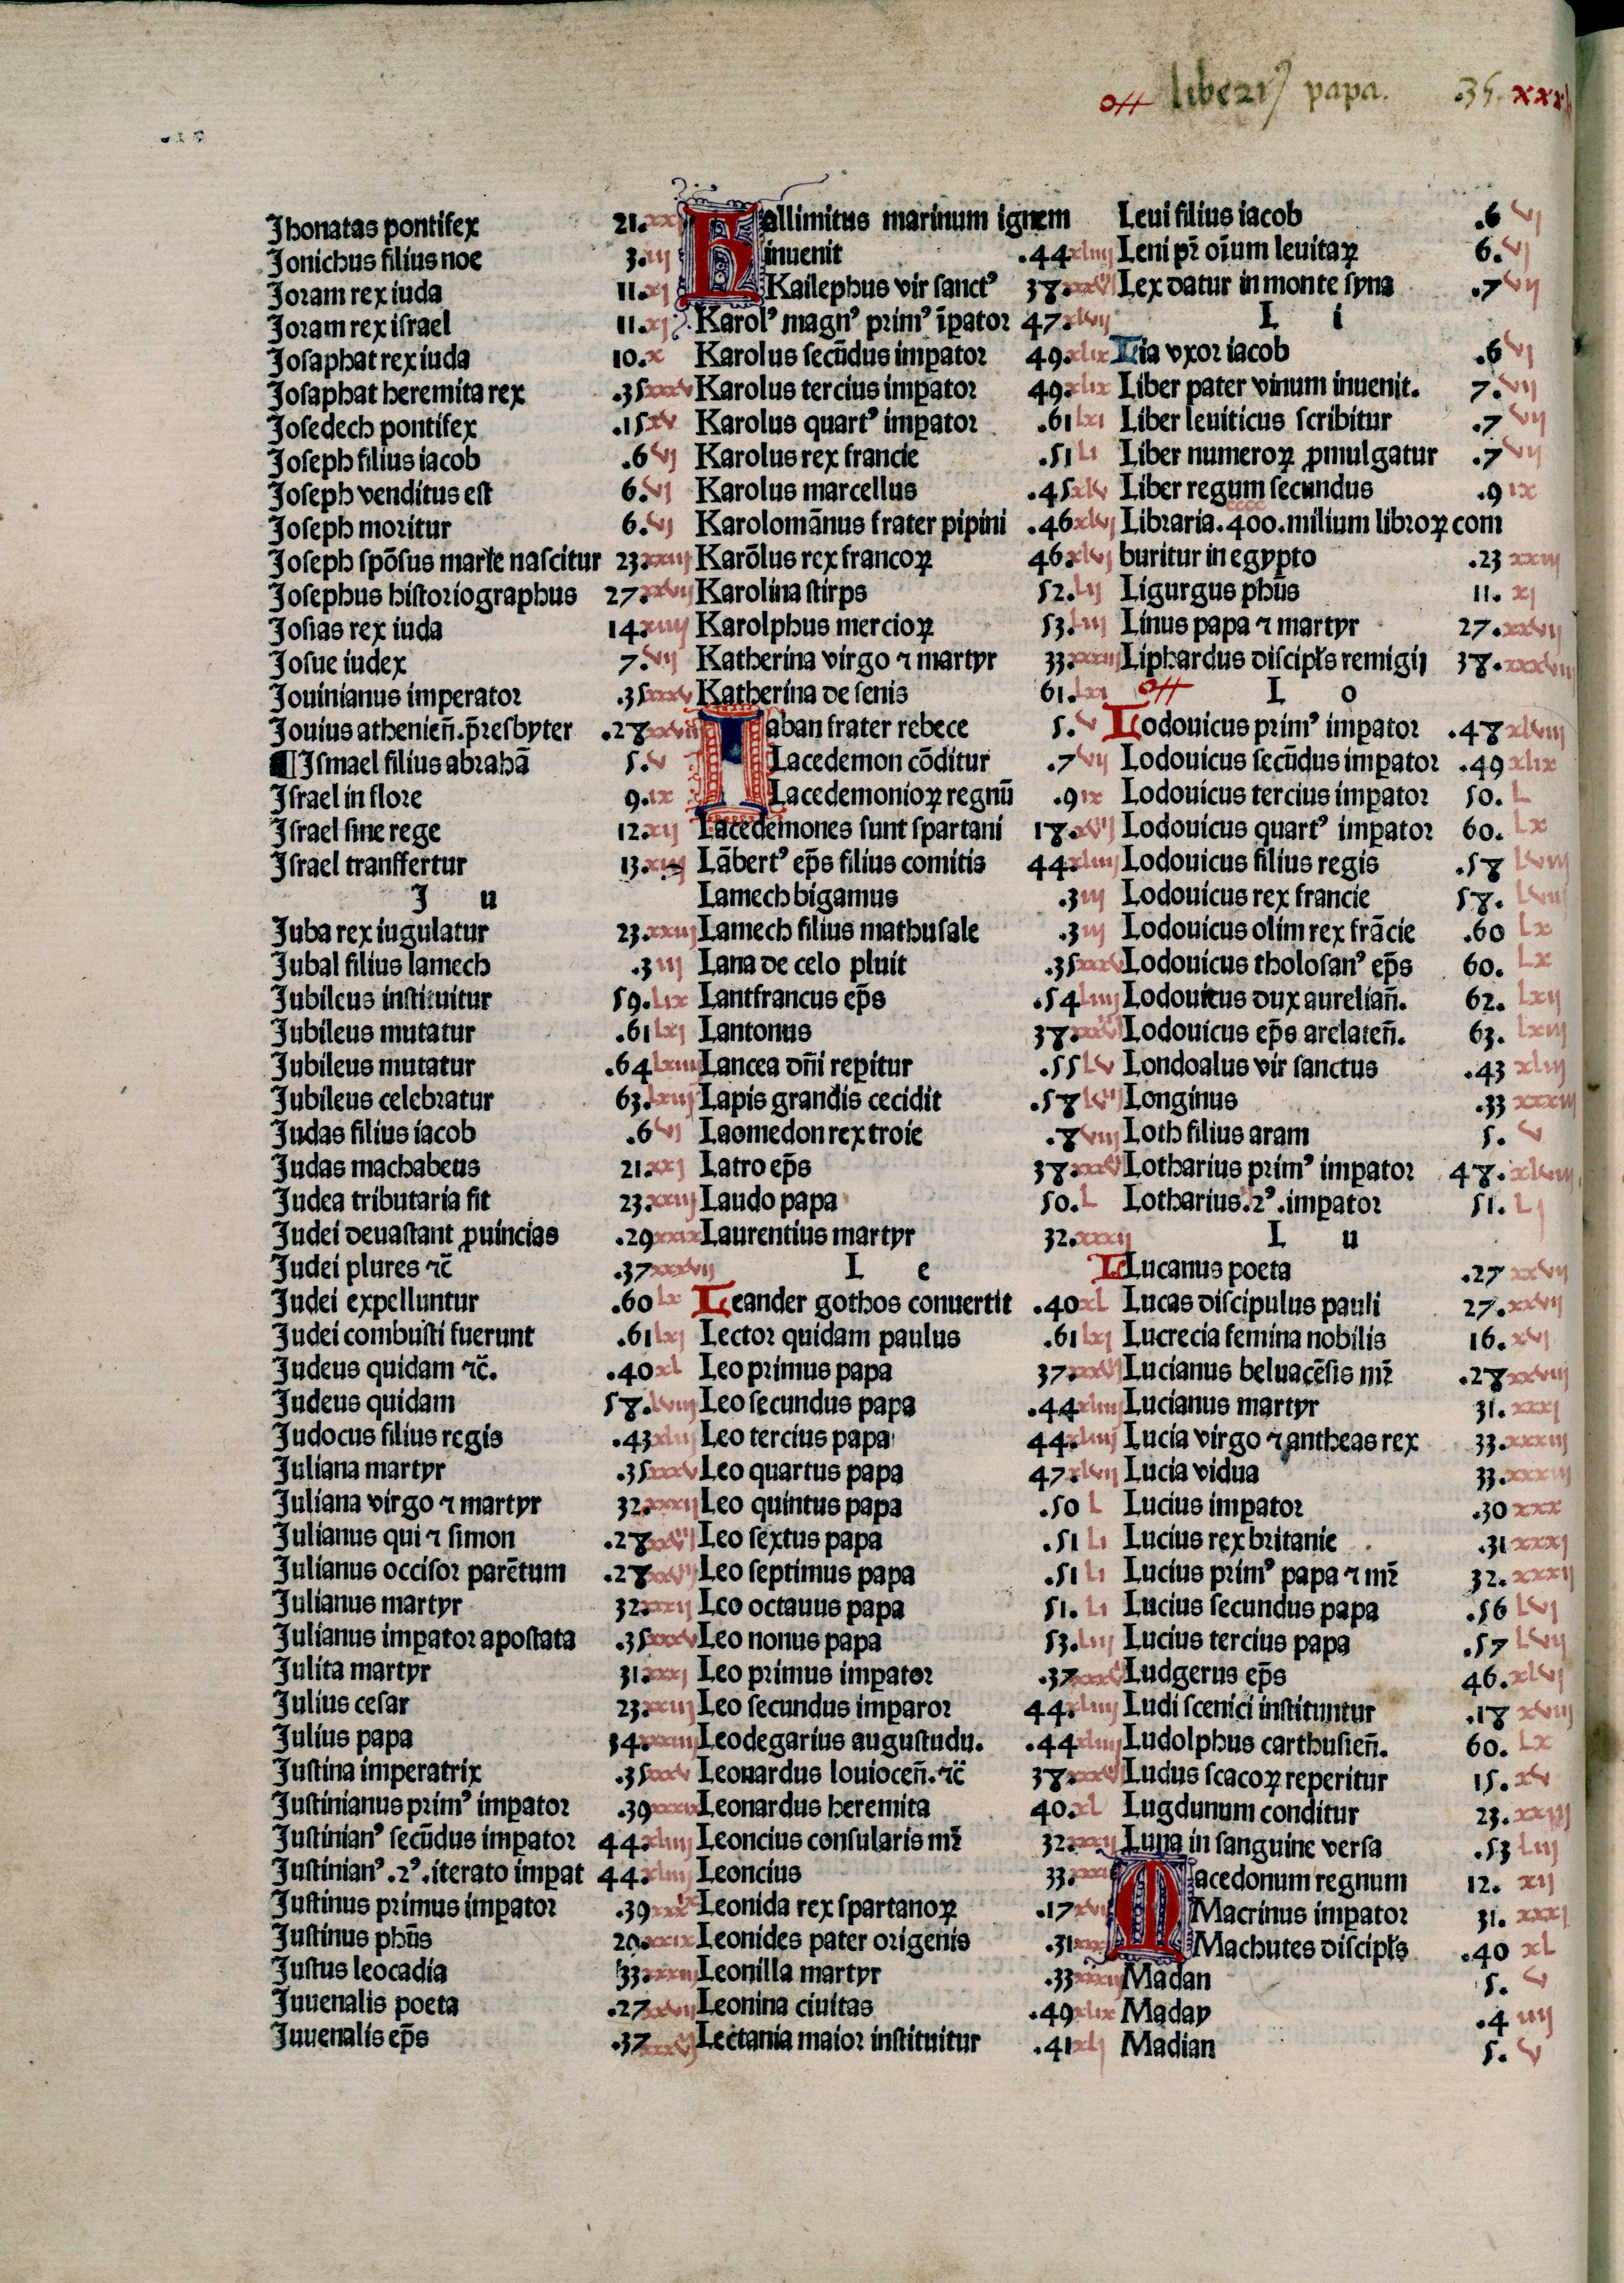 liberiꝰ papa. .35. xxxv
Jhonatas pontifex 21. xxj
Jonichus filius noe 3. iij
Joram rex iuda 11. xj
Joram rex israel 11. xj
Josaphat rex iuda 10. x
Josaphat heremita rex .35 xxxv
Josedech pontifex .15 xv
Joseph filius iacob .6 vj
Joseph venditus est 6. vj
Joseph moritur 6. vj
Joseph spōsus marie nascitur 23. xxiij
Josephus historiographus 27. xxvij
Josias rex iuda 14. xiiij
Josue iudex 7. vij
Jouinianus imperator .35 xxxv
Jouius athenieñ. p̄resbyter .28 xxviij
¶Ismael filius abrahā 5. v
Israel in flore 9. ix
Israel sine rege 12. xij
Israel transfertur 13. xiij
J u
Juba rex iugulatur 23. xxiij
Jubal filius lamech .3 iij
Jubileus instituitur 59. lix
Jubileus mutatur .61 lxj
Jubileus mutatur .64 lxiiij
Jubileus celebratur 63. lxiij
Judas filius iacob .6 vj
Judas machabeus 21. xxj
Judea tributaria fit 23. xxiij
Judei deuastant ꝓuincias .29 xxix
Judei plures ⁊c̄ .37 xxxvij
Judei expelluntur .60 lx
Judei combusti fuerunt .61 lxj
Judeus quidam ⁊c̄. .40 xl
Judeus quidam 58. lviij
Judocus filius regis .43 xliij
Juliana martyr .35 xxxv
Juliana virgo ⁊ martyr 32. xxxij
Julianus qui ⁊ simon .28
Julianus occisor parētum .28
Julianus martyr 32. xxxij
Julianus imperator apostata .35 xxxv
Julita martyr 31. xxxj
Julius cesar 23. xxiij
Julius papa 34. xxxiiij
Justina imperatrix .35 xxxv
Justinianus primꝰ imꝑator .39 xxxix
Justinianꝰ secūdus imꝑator 44. xliiij
Justinianꝰ .2ꝰ. iterato imꝑat 44. xliiij
Justinus primus imꝑator .39
Justinus phūs 29. xxix
Justus leocadia 33. xxxiij
Juuenalis poeta .27 xxvij
Juuenalis ep̄s .37
Kallimitus marinum ignem
inuenit .44 xliiij
Kailephus vir sanctꝰ 38.
Karolꝰ magnꝰ primꝰ īꝑator 47. xlvij
Karolus secūdus imꝑator 49. xlix
Karolus tercius imꝑator 49. xlix
Karolus quartꝰ imꝑator .61 lxi
Karolus rex francie .51 li
Karolus marcellus .45 xlv
Karolomānus frater pipini .46 xlvj
Karōlus rex francoꝝ 46. xlvj
Karolina stirps 52. lij
Karolphus mercioꝝ 53. liij
Katherina virgo ⁊ martyr 33. xxxiij
Katherina de senis 61. lxi
Laban frater rebece 5. v
Lacedemon cōditur .7 vij
Lacedemonioꝝ regnū .9 ix
Lacedemones sunt spartani 18.
Lābertꝰ ep̄s filius comitis 44. xliiij
Lamech bigamus .3 iij
Lamech filius mathusale .3 iij
Lana de celo pluit .35 xxxv
Lantfrancus ep̄s .54 liiij
Lantonus 38.
Lancea dn̄i reꝑitur .55 lv
Lapis grandis cecidit .58
Laomedon rex troie .8 viij
Latro ep̄s 38.
Laudo papa 50. L
Laurentius martyr 32. xxxij
L e
Leander gothos conuertit .40 xl
Lector quidam paulus .61 lxj
Leo primus papa 37.
Leo secundus papa .44 xliiij
Leo tercius papa 44. xliiij
Leo quartus papa 47. xlvij
Leo quintus papa .50 L
Leo sextus papa .51 Li
Leo septimus papa .51 Li
Leo octauus papa 51. Li
Leo nonus papa 53. Liij
Leo primus imꝑator .37
Leo secundus imꝑaror 44. xliiij
Leodegarius augustudu. .44 xliiij
Leonardus louioceñ. ⁊c̄ 38.
Leonardus heremita 40. xl
Leoncius consularis mr̄ 32. xxxij
Leoncius 33.
Leonida rex spartanoꝝ .17 xvij
Leonides pater origenis .31
Leonilla martyr .33 xxxiij
Leonina ciuitas .49 xlix
Lectania maior instituitur .41 xlj
Leui filius iacob .6 vj
Leui pr̄ oīum leuitaꝝ 6. vj
Lex datur in monte syna .7 vij
L i
Lia vxor iacob .6 vj
Liber pater vinum inuenit. 7. vij
Liber leuiticus scribitur .7 vij
Liber numeroꝝ ꝓmulgatur .7 vij
Liber regum secundus .9 ix
cccc
Libraria .400. milium libroꝝ com
buritur in egypto .23 xxiij
Ligurgus phūs 11. xj
Linus papa ⁊ martyr 27. xxvij
Liphardus discipłs remigij 38. xxxviij
L o
Lodouicus primꝰ imꝑator .48 xlviij
Lodouicus secūdus imꝑator .49 xlix
Lodouicus tercius imꝑator 50. L
Lodouicus quartꝰ imꝑator 60. Lx
Lodouicus filius regis .58 lviij
Lodouicus rex francie 58. lviij
Lodouicus olim rex frācie .60 Lx
Lodouicus tholosanꝰ ep̄s 60. Lx
Lodouicus dux aureliañ. 62. lxij
Lodouicus ep̄s arelateñ. 63. lxiij
Londoalus vir sanctus .43 xliij
Longinus .33 xxxiij
Loth filius aram 5. v
Lotharius primꝰ imꝑator 48. xlviij
Lotharius .2ꝰ. imꝑator 51. Lj
L u
Lucanus poeta .27 xxvij
Lucas discipulus pauli 27. xxvij
Lucrecia femina nobilis 16. xvj
Lucianus beluacēsis mr̄ .28 xxviij
Lucianus martyr 31. xxxj
Lucia virgo ⁊ antheas rex 33. xxxiij
Lucia vidua 33. xxxiij
Lucius imꝑator .30 xxx
Lucius rex britanie .31 xxxj
Lucius primꝰ papa ⁊ mr̄ 32. xxxij
Lucius secundus papa .56 lvj
Lucius tercius papa .57 lvij
Ludgerus ep̄s 46. xlvj
Ludi scenici instituntur .18 xviij
Ludolphus carthusieñ. 60. Lx
Ludus scacoꝝ reperitur 15. xv
Lugdunum conditur 23. xxiij
Luna in sanguine versa .53 Liij
Macedonum regnum 12. xij
Macrinus imꝑator 31. xxxj
Machutes discipłs .40 xL
Madan 5. v
Maday .4 iiij
Madian 5. v